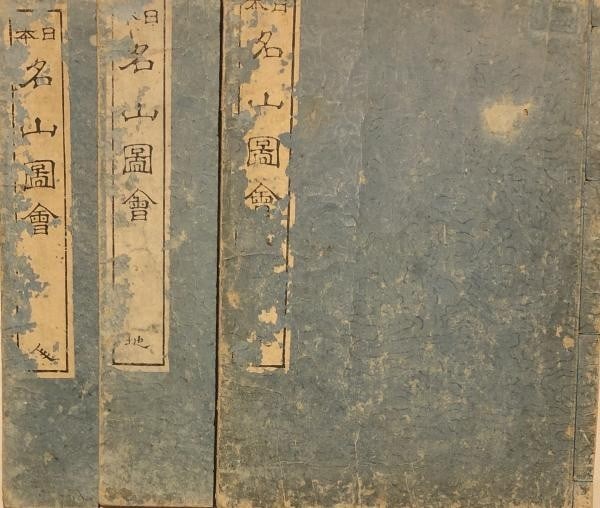 日本名山圖會
日本名山圖會 地
日本名山圖會